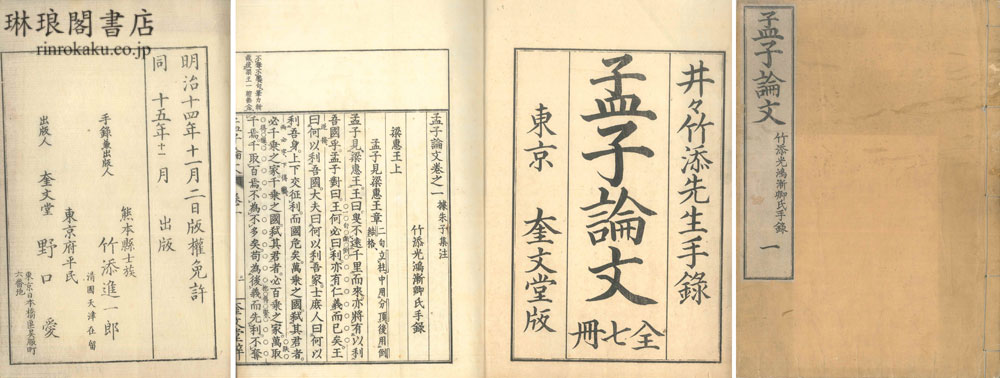 琳琅閣書店
rinrokaku.co.jp
明治十四年十一月二日版權免許
同 十五年十一月 出版
熊本縣士族
手錄兼出版人 竹添進一郎
清國天津在留
東京府平民
出版人 奎文堂 野口愛
六番地
孟子論文卷之一 據朱子集注
竹添光鴻漸卿氏手錄
梁惠王上
孟子見梁惠王章
孟子見梁惠王王曰叟不遠千里而來亦將有以利
吾國乎孟子對曰王何必曰利亦有仁義而已矣王
曰何以利吾國大夫曰何以利吾家士庶人曰何以
利吾身上下交征利而國危矣萬乘之國弑其君者
必千乘之家千乘之國弑其君者必百乘之家萬取
千焉千取百焉不為不多矣苟為後義而先利不奪
井々竹添先生手錄
孟子論文
全七冊
東京 奎文堂版
孟子論文 竹添光鴻漸卿氏手錄 一